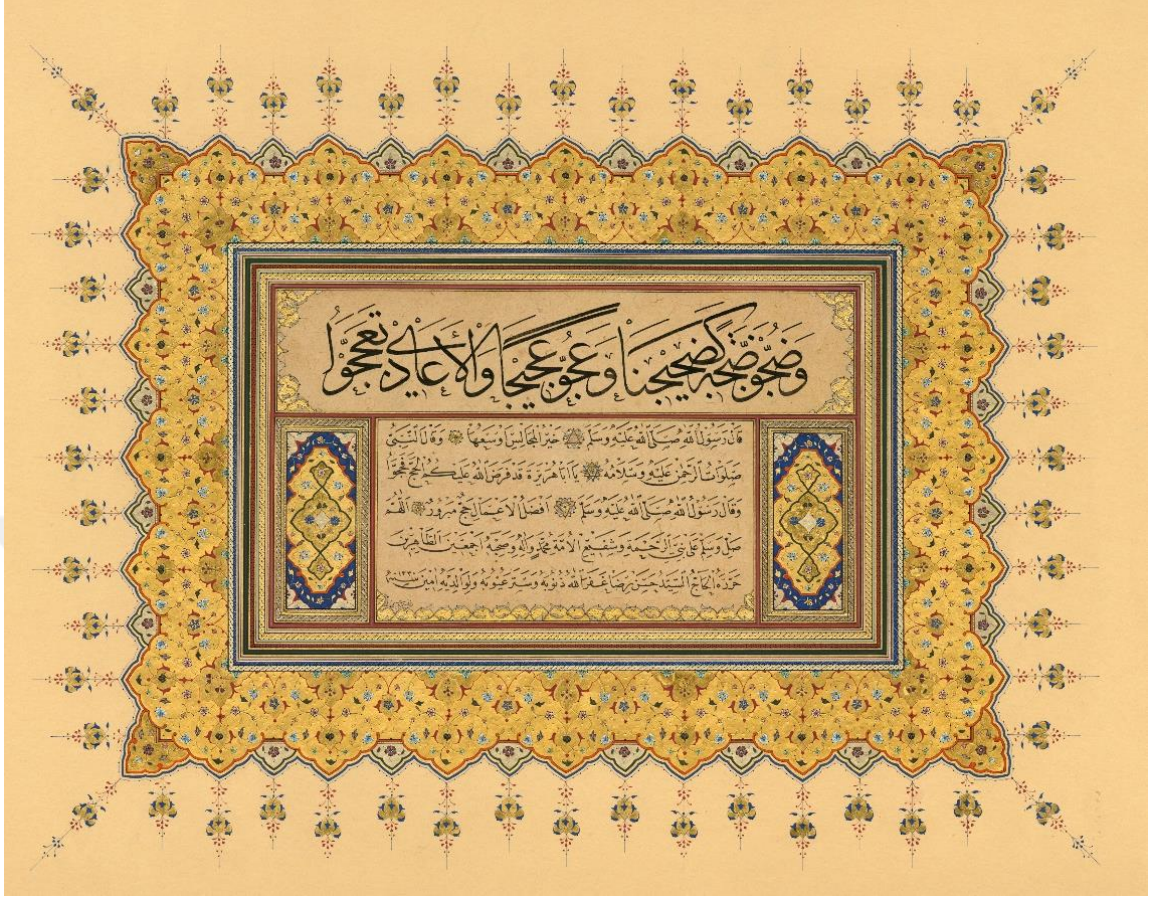 وَضَجُّوا ضَجَّةً كَضَجِيجِنَا وَعَجُّوا عَجِيجًا وَالْأَعَادِي تَعَجَّوُا
قَالَ رَسُولُ اللهِ صَلَّى اللهُ عَلَيْهِ وَسَلَّمَ خَيْرُ الْمَجَالِسِ أَوْسَعُهَا وَقَالَ النَّبِيُّ
صَلَوَاتُ الرَّحْمٰنِ عَلَيْهِ وَسَلَامُهُ يَا أَبَا هُرَيْرَةَ قَدْ فَرَضَ اللهُ عَلَيْكُمُ الْحَجَّ فَحُجُّوا
وَقَالَ رَسُولُ اللهِ صَلَّى اللهُ عَلَيْهِ وَسَلَّمَ أَفْضَلُ الْأَعْمَالِ حَجٌّ مَبْرُورٌ اَللّٰهُمَّ
صَلِّ وَسَلِّمْ عَلَى نَبِيِّ الرَّحْمَةِ وَشَفِيعِ الْأُمَّةِ مُحَمَّدٍ وَآلِهِ وَصَحْبِهِ أَجْمَعِينَ الطَّاهِرِينَ
حَرَّرَهُ الْحَاجُّ السَّيِّدُ حَسَنْ رِضَا غَفَرَ اللهُ ذُنُوبَهُ وَسَتَرَ عُيُوبَهُ وَلِوَالِدَيْهِ آمِينَ سنة